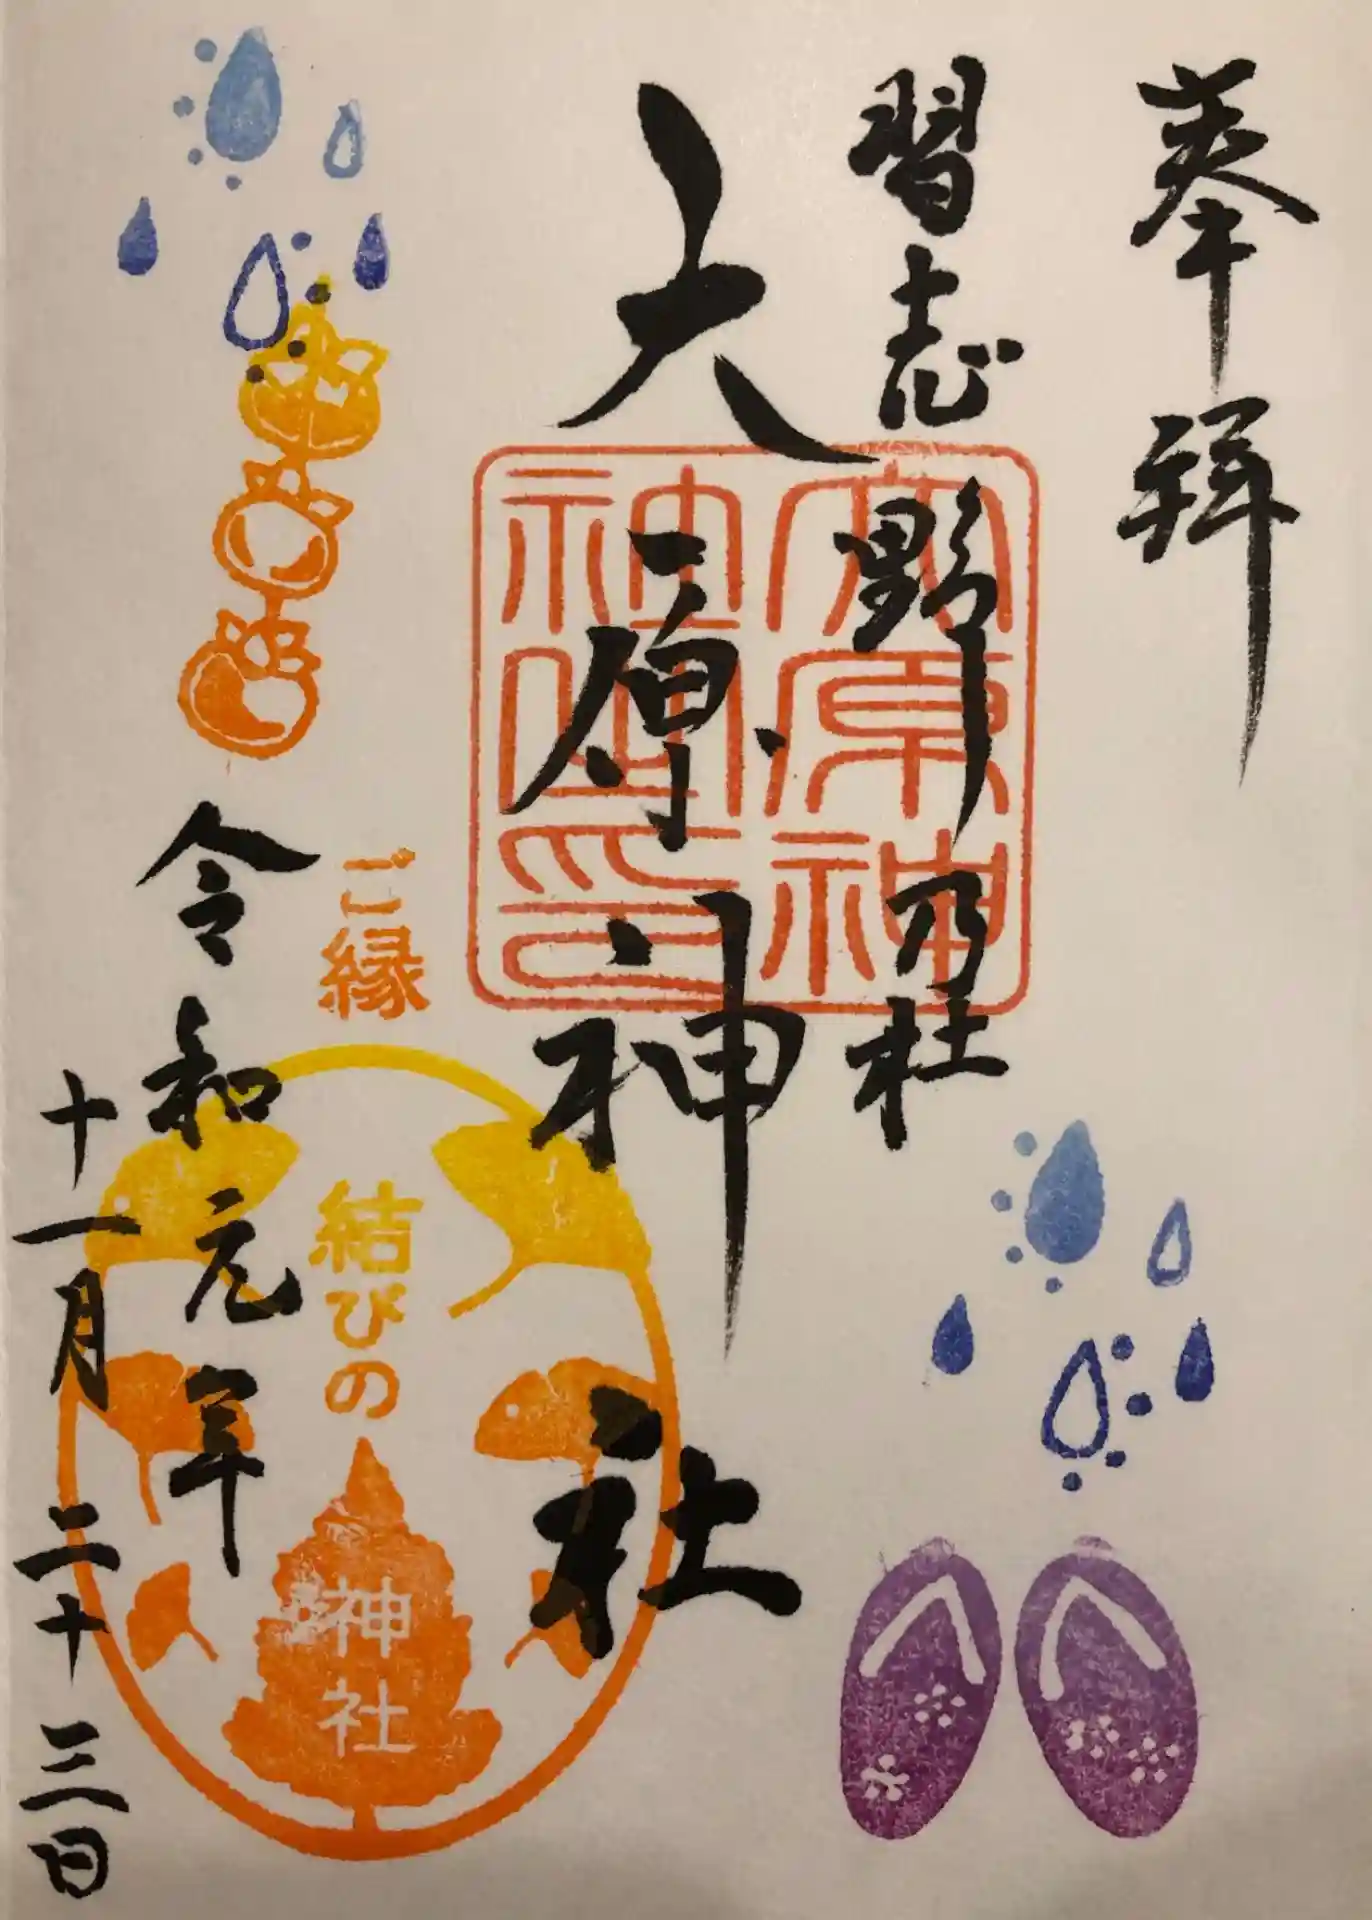 奉拝
習志野乃社
大原神社
大原神社神璽印
ご縁
結びの
神社
令和元年
十一月二十三日